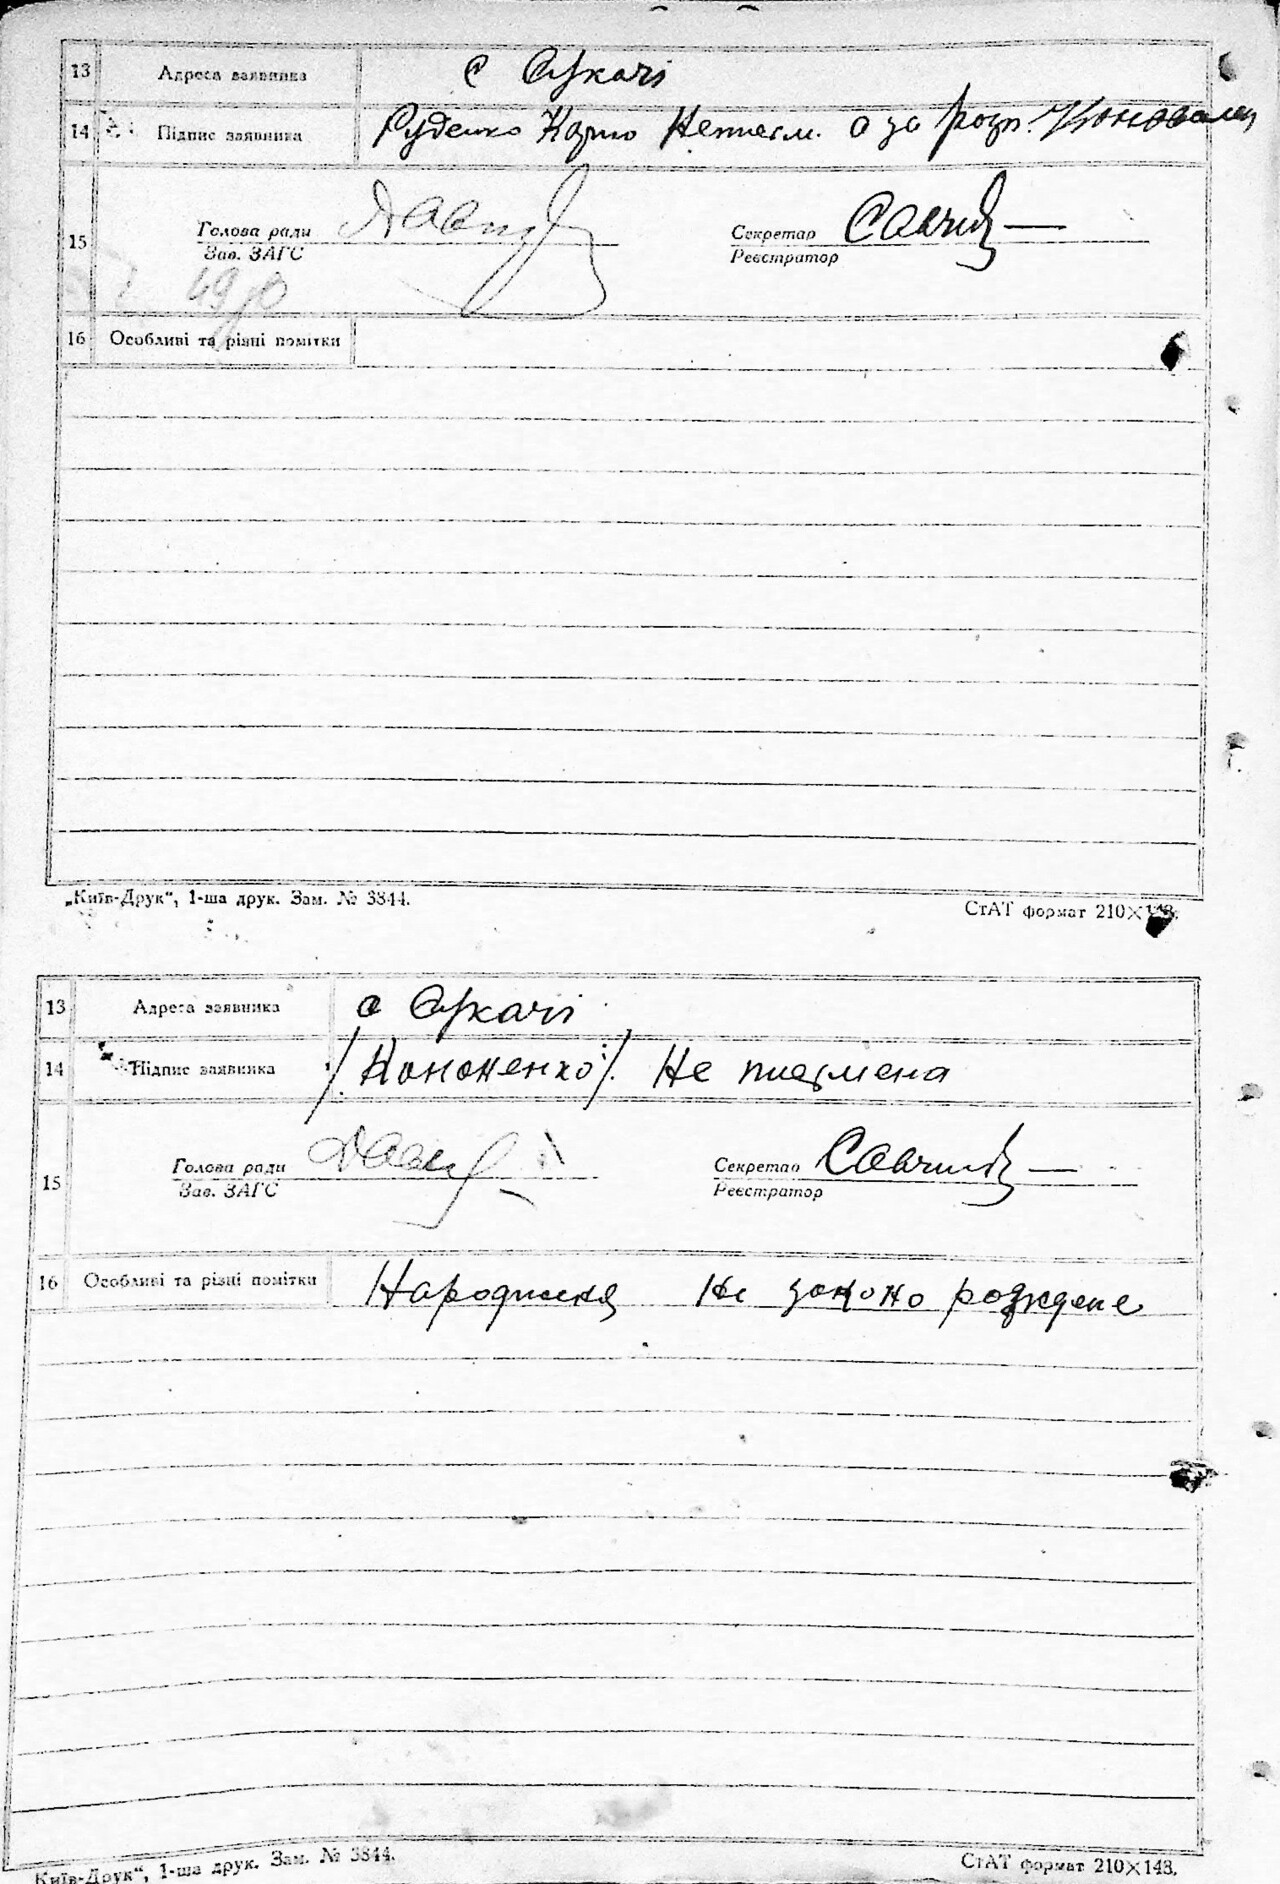 13 Адреса заявника с Сукачі
14 Підпис заявника Руденко Неписьм. а за розп. Коновалец
Голова ради Секретар Савчид
15
Зав. ЗАГС Реєстратор
16 Особливі та різні помітки
„Київ-Друк“, 1-ша друк. Зам. № 3844. СтАТ формат 210×148.
13 Адреса заявника с Сукачі
14 Підпис заявника /Кононенко/. Не писмена
Голова ради Секретар
15
Зав. ЗАГС Реєстратор
16 Особливі та різні помітки Народився не законо рожденe
Київ-Друк“, 1-ша друк. Зам. № 3844. СтАТ формат 210×148.